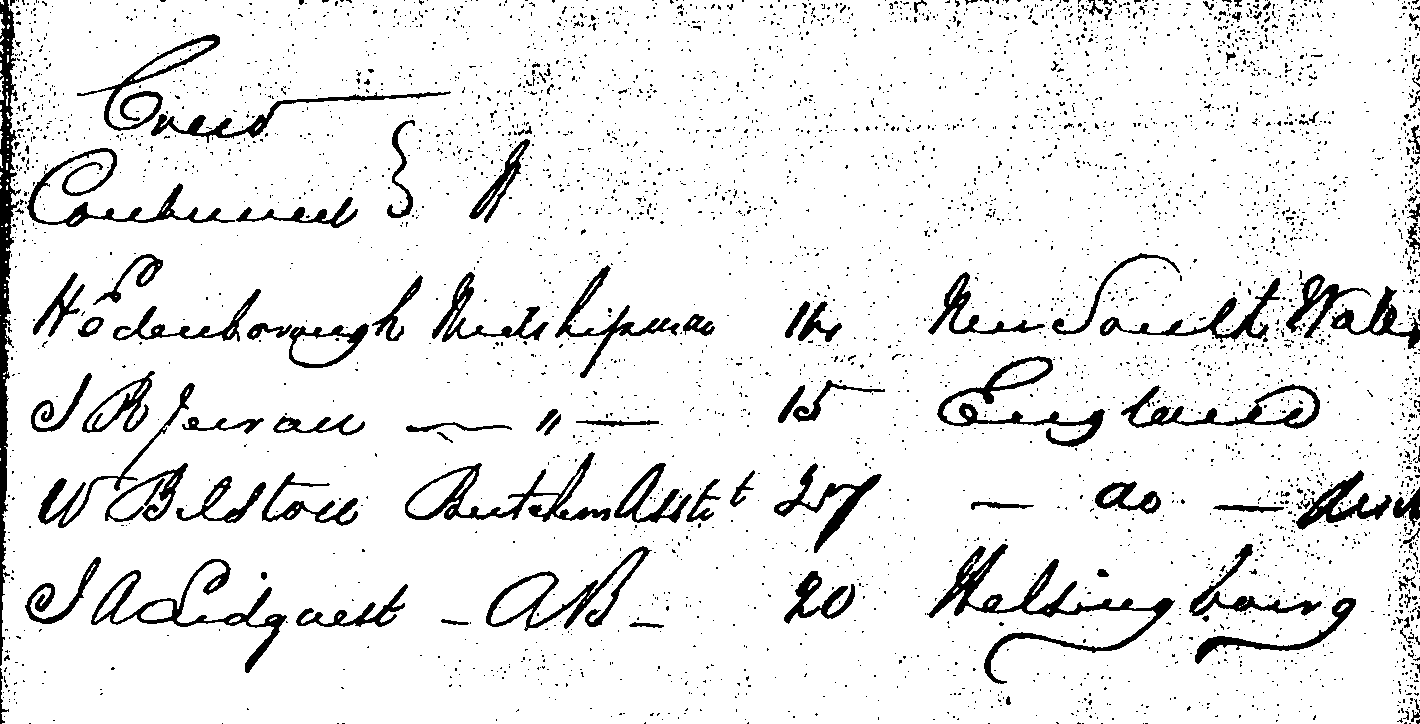 Crew
Continued }
H Edenborough Midshipman 14 New South Wales
J R Jerrau — " — 15 England
W Bilston Butchers Asstt 27 — do —
J A Lidquest - AB - 20 Helsingbourg